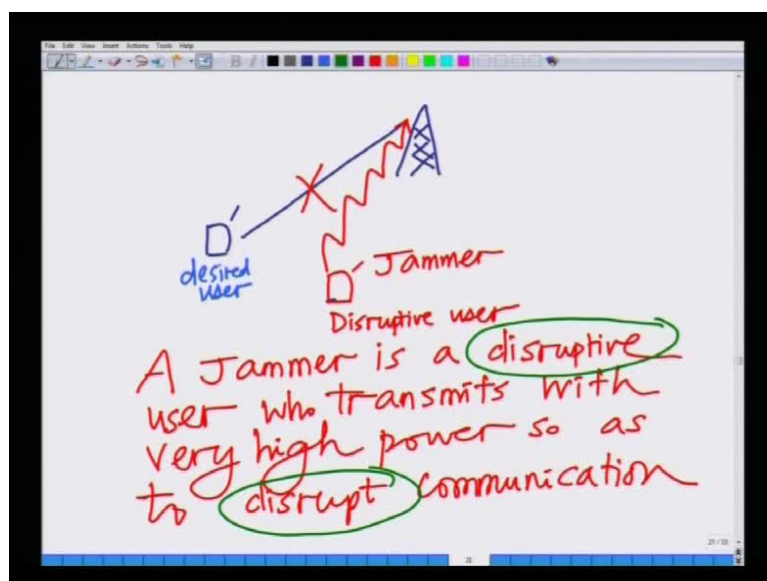 File Edit View Insert Actions Tools Help
D'
desired
user
D' Jammer
Disruptive user
A Jammer is a disruptive
user who transmits with
very high power so as
to disrupt communication